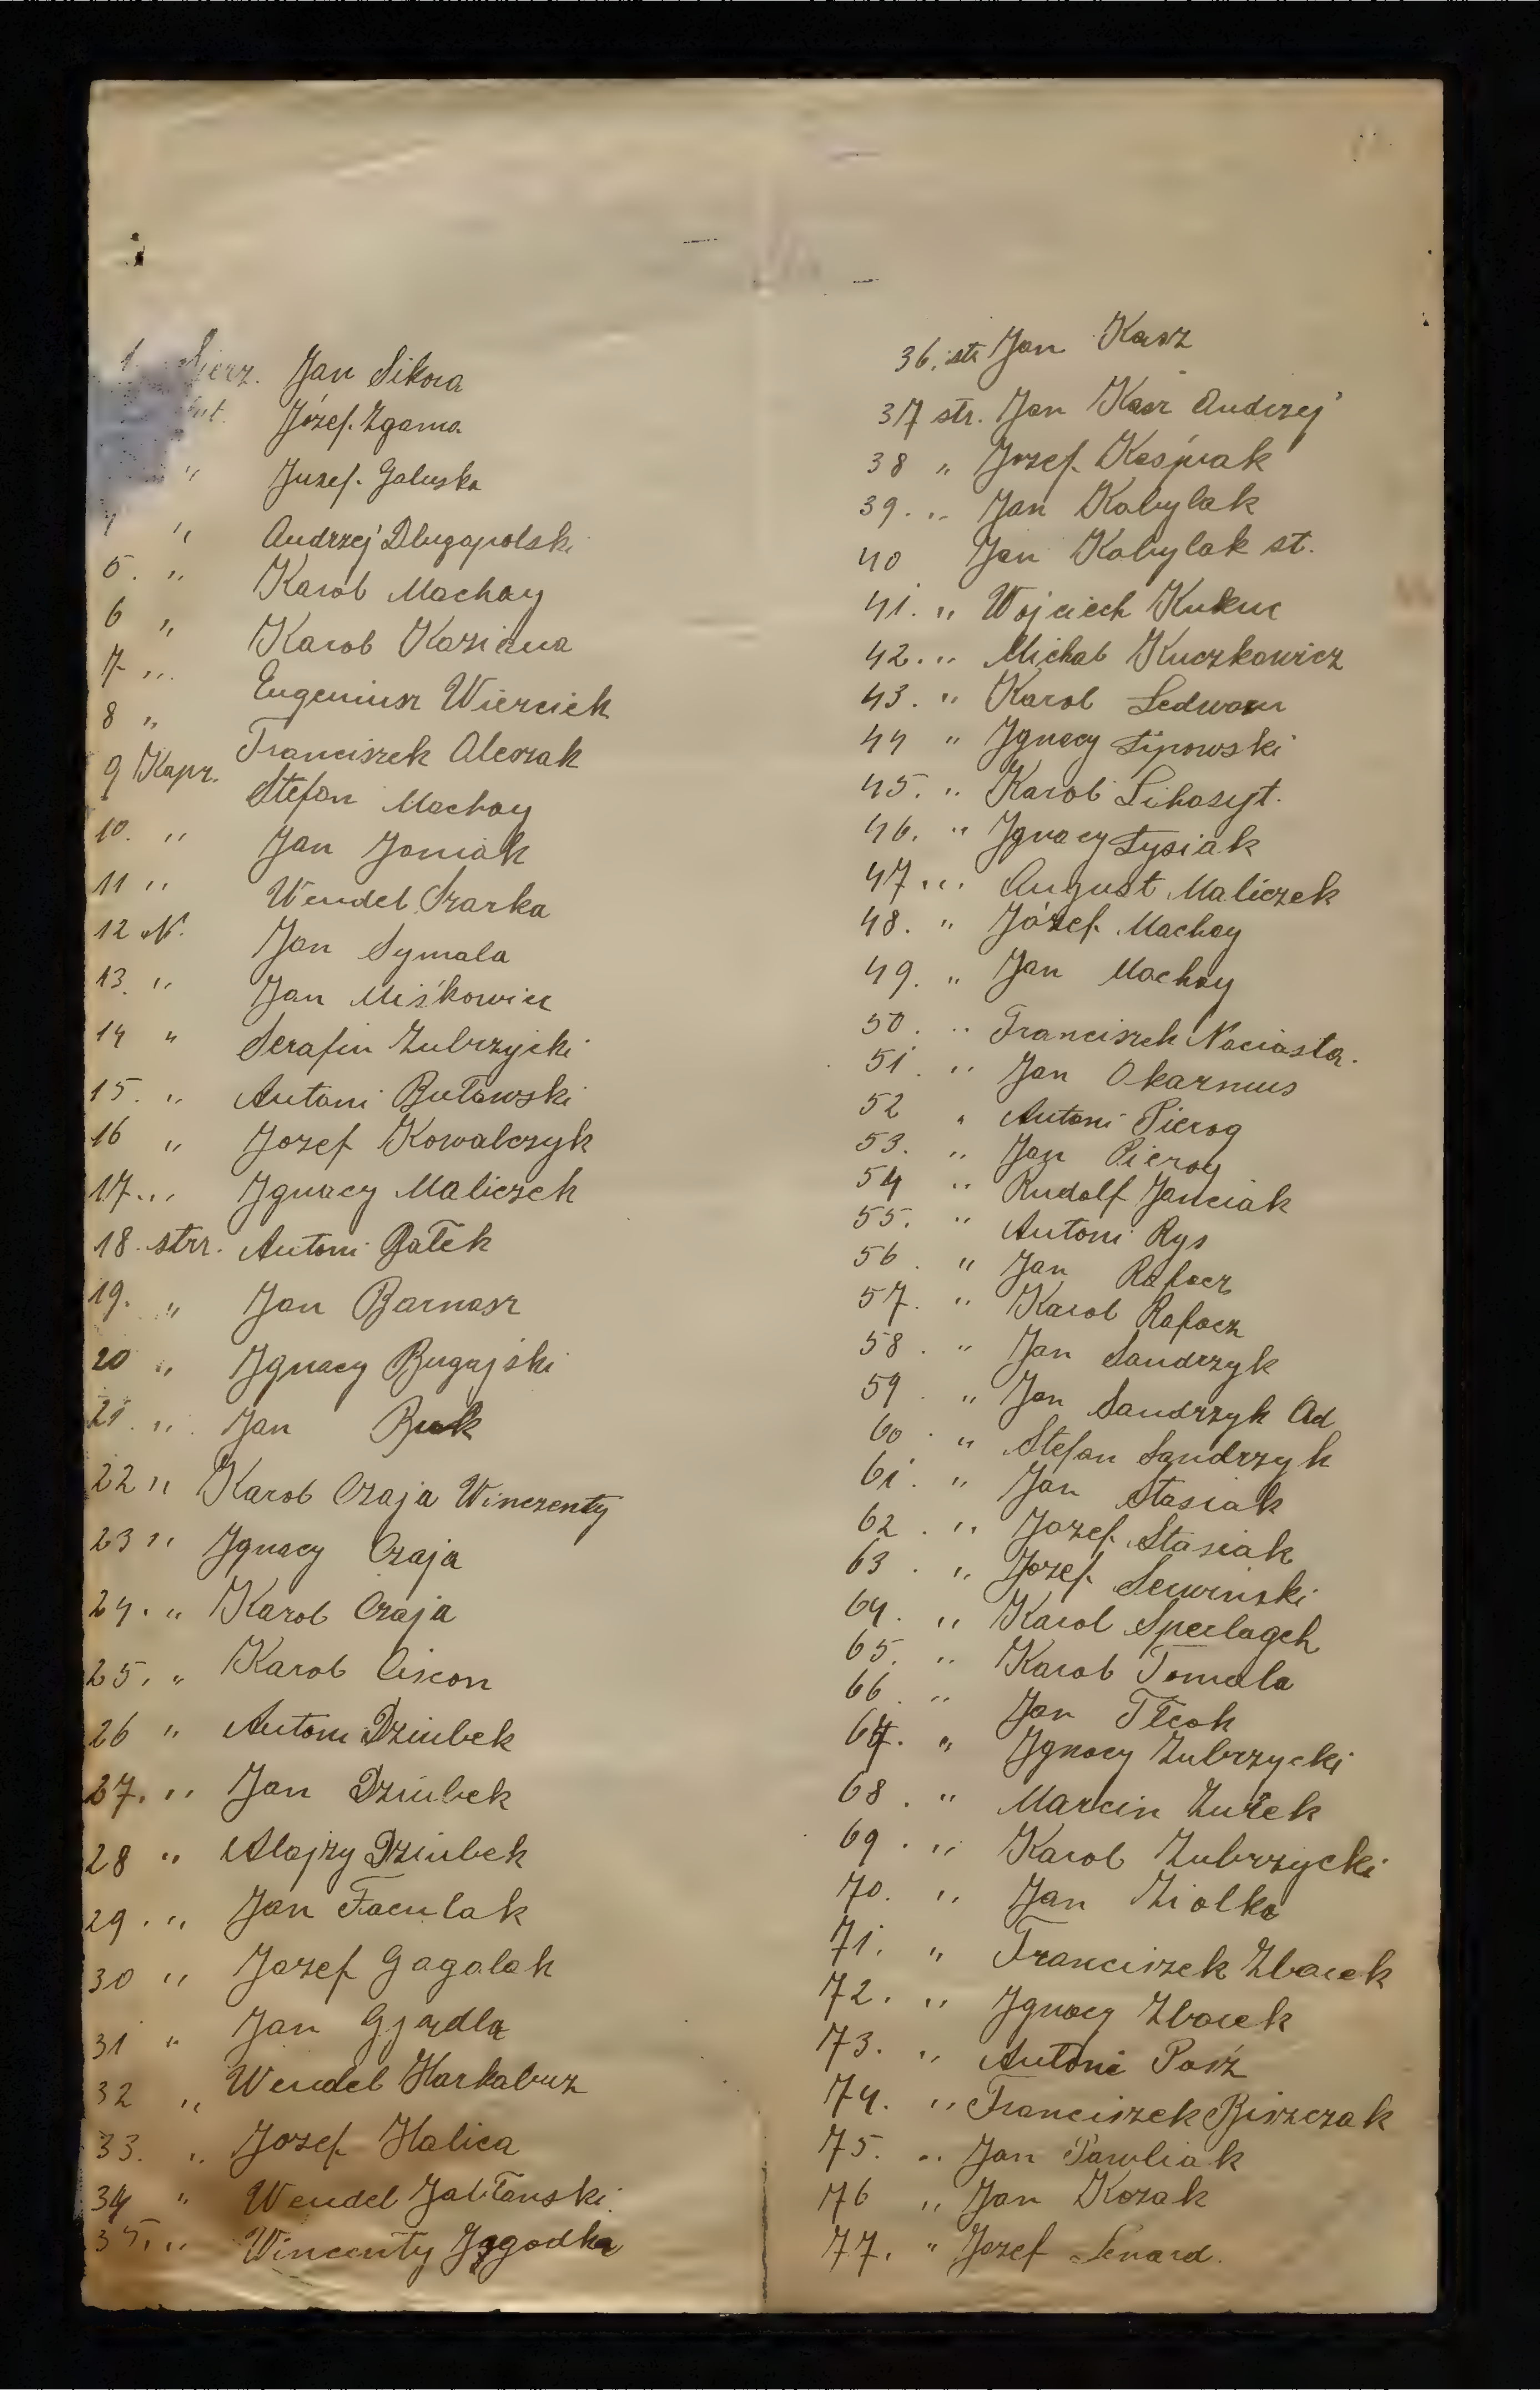 1. Sierz. Jan Sikora
Józef Zgama
" Juzef. Galuska
" Andrzej Dlugopolski
5. " Karol Machay
6 " Karol Kaziana
7 " Eugeniusz Wierciek
8 " Franciszek Aleszak
9 Kapr. Stefan Machay
10. " Jan Joniak
11 " Wendel Szarka
12 N. Jan Symala
13. " Jan Miśkowicz
14 " Serafin Zubrzycki
15. " Antoni Butowski
16 " Jozef Kowalczyk
17. " Ignacy Maliczek
18. str. Antoni Bałek
19. " Jan Barnasz
20 " Ignacy Bugajski
21. " Jan Buk
22 " Karol Czaja Winczenty
23 " Ignacy Czaja
24. " Karol Czaja
25. " Karol Ciscon
26 " Antoni Dziubek
27. " Jan Dziubek
28 " Alojzy Dziubek
29. " Jan Faculak
30 " Jozef Gagolak
31 " Jan Gjądla
32 " Wendel Harkabuz
33. " Jozef Halica
34 " Wendel Jabłonski
35. " Wincenty Jagodka
36. str Jan Kasz
37 str. Jan Kasz Andrzej
38 " Jozef Kaśprak
39. " Jan Kobylak
40 Jan Kobylak st.
41. " Wojciech Kukuc
42. " Michał Kuczkowicz
43. " Karol Ledwoń
44 " Ignacy Lipowski
45. " Karol Lihosyt.
46. " Ignacy Łysiak
47. " August Maliczek
48. " Józef Machay
49. " Jan Machay
50. " Franciszek Naciasta.
51. " Jan Okarmus
52 " Antoni Pierog
53. " Jan Pierog
54 " Rudolf Janciak
55. " Antoni Rys
56. " Jan Rafacz
57. " Karol Rafacz
58. " Jan Sandrzyk
59. " Jan Sandrzyk Ad
60. " Stefan Sandrzyk
61. " Jan Stasiak
62. " Jozef Stasiak
63. " Jozef Serwinski
64. " Karol Sperlagch
65. " Karol Tomala
66. " Jan Tłcok
67. " Ignacy Zubrzycki
68. " Marcin Zurek
69. " Karol Zubrzycki
70. " Jan Ziolko
71. " Franciszek Zborek
72. " Ignacy Zborek
73. " Antoni Poiź
74. " Franciszek Biszczak
75. " Jan Pawliak
76 " Jan Kozak
77. " Jozef Lenard.